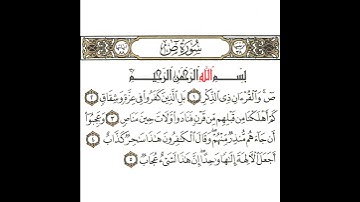 سورة ص
بسم الله الرحمن الرحيم
ص والقرءان ذى الذكر ١ بل الذين كفروا فى عزة وشقاق ٢
كم أهلكنا من قبلهم من قرن فنادوا ولات حين مناص ٣ وعجبوا
أن جاءهم منذر منهم وقال الكفرون هذا سحر كذاب ٤
أجعل الءالهة إلها وحدا إن هذا لشىء عجاب ٥